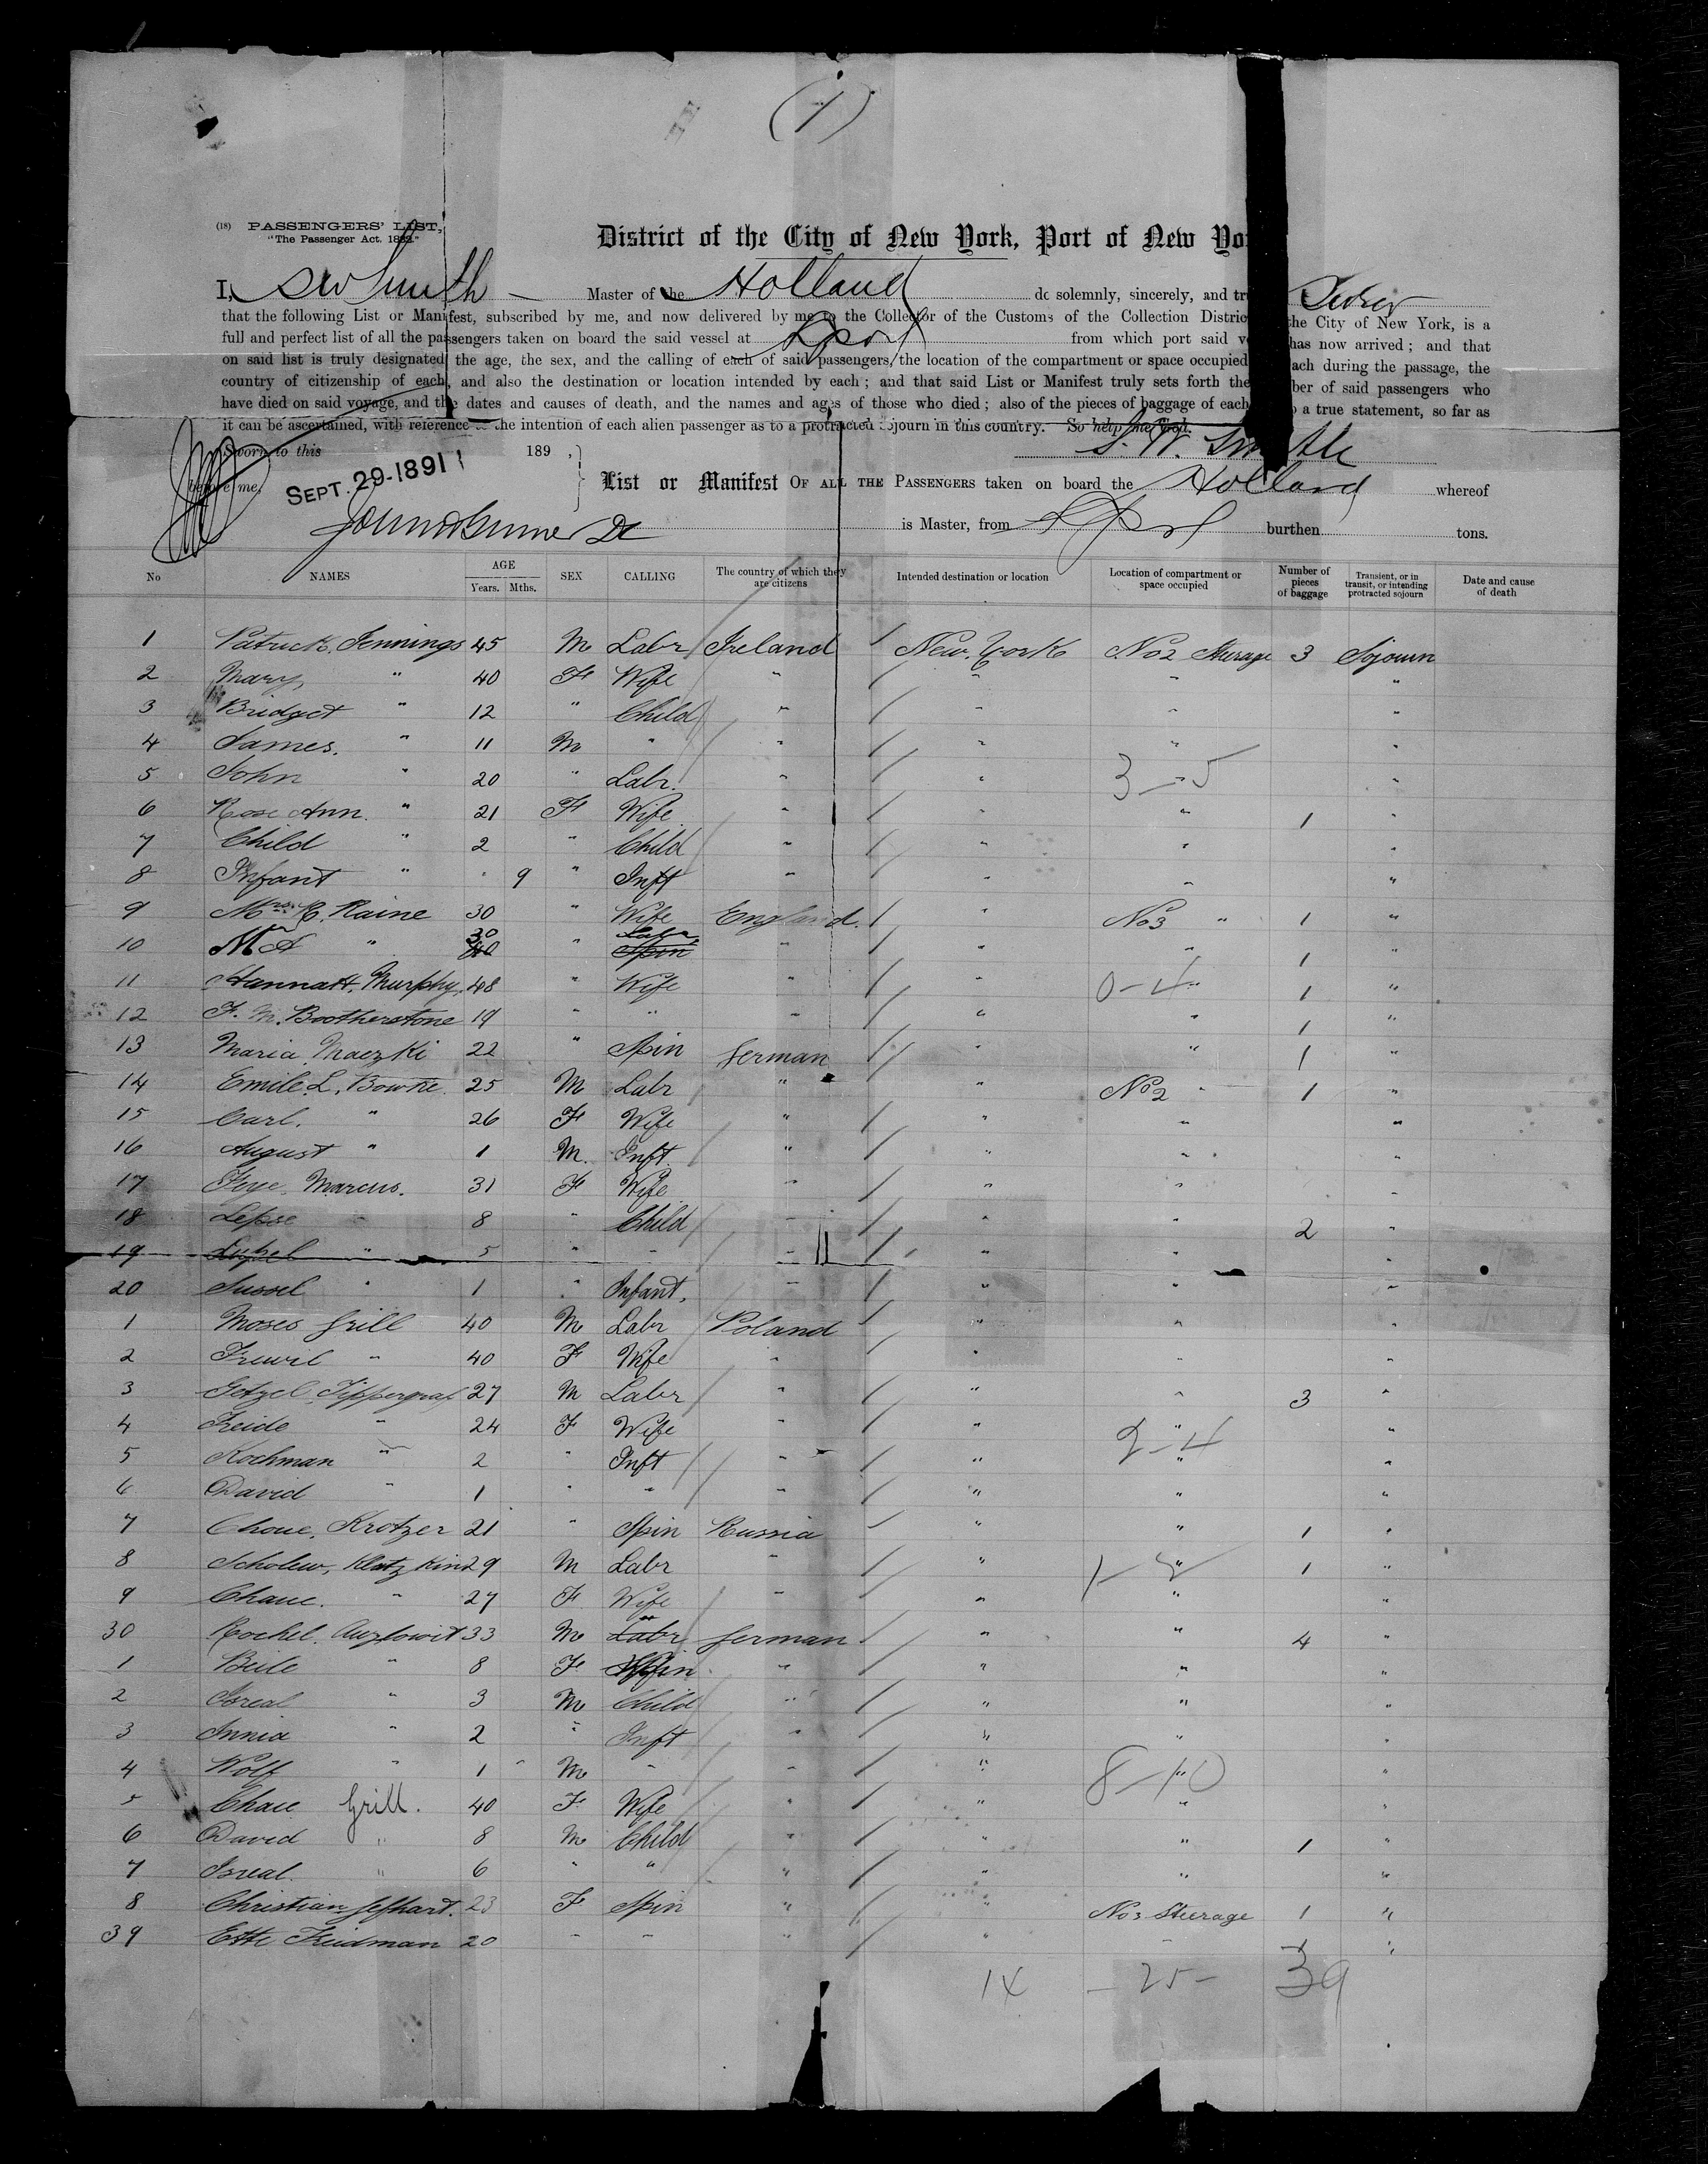 (1)
(18) PASSENGERS' LIST,
"The Passenger Act. 1882."
District of the City of New York, Port of New Yo
I, S W Smith Master of the Holland do solemnly, sincerely, and tr
that the following List or Manifest, subscribed by me, and now delivered by me to the Collector of the Customs of the Collection Distric the City of New York, is a
full and perfect list of all the passengers taken on board the said vessel at L'pool from which port said v has now arrived; and that
on said list is truly designated the age, the sex, and the calling of each of said passengers, the location of the compartment or space occupied ach during the passage, the
country of citizenship of each, and also the destination or location intended by each; and that said List or Manifest truly sets forth the ber of said passengers who
have died on said voyage, and the dates and causes of death, and the names and ages of those who died; also of the pieces of baggage of each a true statement, so far as
it can be ascertained, with reference to the intention of each alien passenger as to a protracted sojourn in this country. So help me God.
Sworn to this 189 , S. W. Smith
before me, SEPT. 29-1891
List or Manifest OF ALL THE PASSENGERS taken on board the Holland whereof
is Master, from L'pool burthen tons.
No NAMES AGE Years. Mths. SEX CALLING The country of which they are citizens Intended destination or location Location of compartment or space occupied Number of pieces of baggage Transient, or in transit, or intending protracted sojourn Date and cause of death
1 Patrick Jennings 45 M Labr Ireland New York No 2 Steerage 3 Sojourn
2 Mary " 40 F Wife " " " "
3 Bridget " 12 " Child " " " "
4 James " 11 M " " " " "
5 John " 20 " Labr. " " " "
3 - 5
6 Rose Ann " 21 F Wife " " " 1 "
7 Child " 2 " Child " " " "
8 Infant " 9 " Inft " " " "
9 Mrs R. Raine 30 " Wife England " No 3 " 1 "
10 M A " 30 " " " " 1 "
11 Hannah Murphy 48 " Wife " " " 1 "
0 - 4
12 F. M. Bootherstone 19 " " " " " 1 "
13 Maria Maczki 22 " Spin German " " 1 "
14 Emile L. Bowke 25 M Labr " " No 2 " 1 "
15 Carl. " 26 F Wife " " " "
16 August " 1 M. Inft " " " "
17 Feye Marcus. 31 F Wife " " " "
18 Lepse " 8 " Child " " " 2 "
19 " 5 " " " " " "
20 Sussel " 1 " Infant. " " " "
1 Moses Grill 40 M Labr Poland " " "
2 " 40 F Wife " " " "
3 Getzel 27 M Labr " " " 3 "
4 Freide " 24 F Wife " " " "
2 - 4
5 Kochman " 2 " Inft " " " "
6 David " 1 " " " " " "
7 Chaue, Krotzer 21 " Spin Russia " " 1 "
8 Scholew, Klatzkin 29 M Labr " " " 1 "
9 Chaue. " 27 F Wife " " " "
30 Rochel 33 M Labr German " " 4 "
1 Beile " 8 F Spin " " " "
2 Isreal " 3 M Child " " " "
3 Innia " 2 " Inft " " " "
4 Wolf " 1 M " " " " "
8 - 10
5 Chaie Grill. 40 F Wife " " " "
6 David " 8 M Child " " " 1 "
7 Isreal. " 6 " " " " " "
8 Christian Gefhart. 23 F Spin " " No 3 Steerage 1 "
39 Ette Freidman 20 " " " " " "
14 - 25 - 39